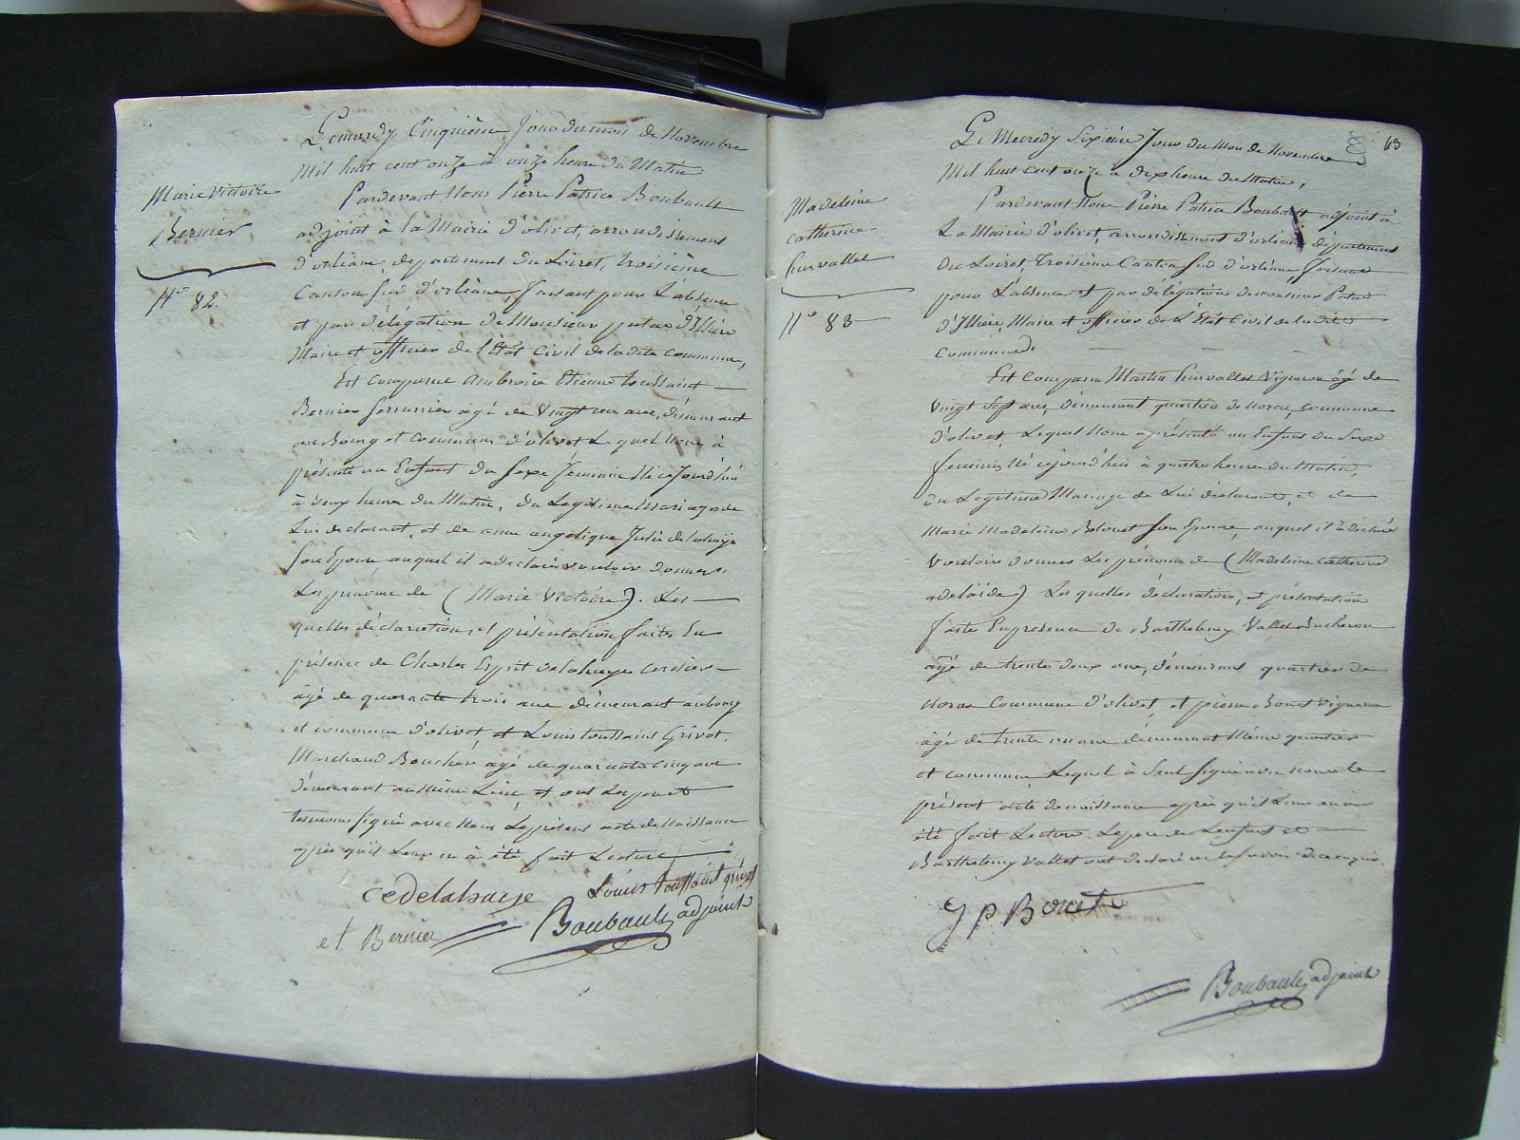 Marie Victoire
Bernier
N.o 82.
Le mardy Cinquième Jour du mois de Novembre
mil huit cent onze à onze heure du Matin
Pardevant Nous Pierre Patrice Boubault
adjoint à la Mairie d'olivet, arrondissement
d'orléans, departement du Loiret, troisième
Canton sud d'orléans, faisant pour L'absence
et par délégation de Monsieur patas d'Illiers
Maire et officier de l'État Civil de la dite commune,
Est comparu ambroise Etienne toussaint
Bernier serrurier agé de Vingt ans, demeurant
au Bourg et commune d'olivet Lequel nous à
présenté un Enfant du sexe féminin Né cejourd'hui
à deux heures du Matin, du Legitime Mariage de
Lui declarant, et de anne angelique Julie delahaye
son Epouse auquel il a déclaré vouloir donner
Les prenoms de (Marie Victoire). Les
quelles déclaration, et présentation faites En
présence de Charles Esprit delahaye cordier
âgé de quarante trois ans demeurant au bourg
et commune d'olivet, et Louis toussaint Grivot.
Marchand Boucher agé de quarante cinq ans
demeurant au même Lieu et ont Les père et
temoins signé avec Nous Le présent acte de Naissance
après qu'il Leur en à été fait Lecture
cedelahaye Louis toussaint grivot
et Bernier Boubault adjoint
63
Madeleine
catherine
hurvallet
N.o 83
Le Mecredy Sixième Jour du Mois de Novembre
Mil huit cent onze à dix heure du Matin,
Pardevant Nous Pierre Patrice Boubault adjoint à
La Mairie d'olivet, arrondissement d'orléans département
du Loiret, Troisième Canton sud d'orléans faisant
pour L'absence et par délégation de monsieur Patas
d'Illiers, Maire et officier de L'État Civil de la dite
commune
Est Comparu Martin hurvallet Vigneron âgé de
vingt sept ans, Demeurant quartier de Noras, commune
d'olivet, Lequel Nous a présenté un Enfant du Sexe
feminin, Né cejourd'hui à quatre heures du Matin,
du Legitime Mariage de Lui déclarant, et de
Marie Madeleine Bonet son Epouse, auquel il à déclaré
Vouloir donner Les prénoms de (Madeleine Catherine
adelaïde) Les quelles déclaration, et présentation
faite En presence de Barthelemy Vallet Bucheron
âgé de trente deux ans, demeurant quartier de
Noras Commune d'olivet, et pierre Bonet Vigneron
âgé de trente un ans demeurant Même quartier
et commune Lequel à Seul signé avec nous le
présent acte de naissance après qu'il Leur en à
été fait Lecture. Le pere de L'enfant et
Barthelemy Vallet ont declaré ne le savoir de ce requis.
J P Bouet
Boubault adjoint